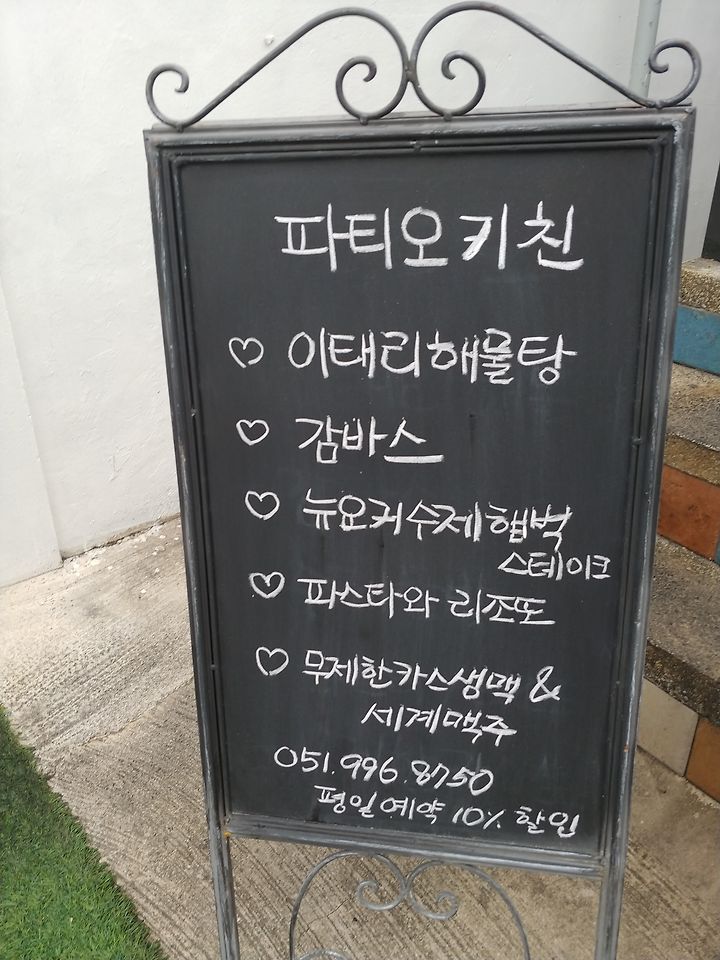 파티오키친
♡ 이태리해물탕
♡ 감바스
♡ 뉴요커수제햄벅
스테이크
♡ 파스타와 리조또
♡ 무제한카스생맥 &
세계맥주
051.996.8750
평일예약 10% 할인